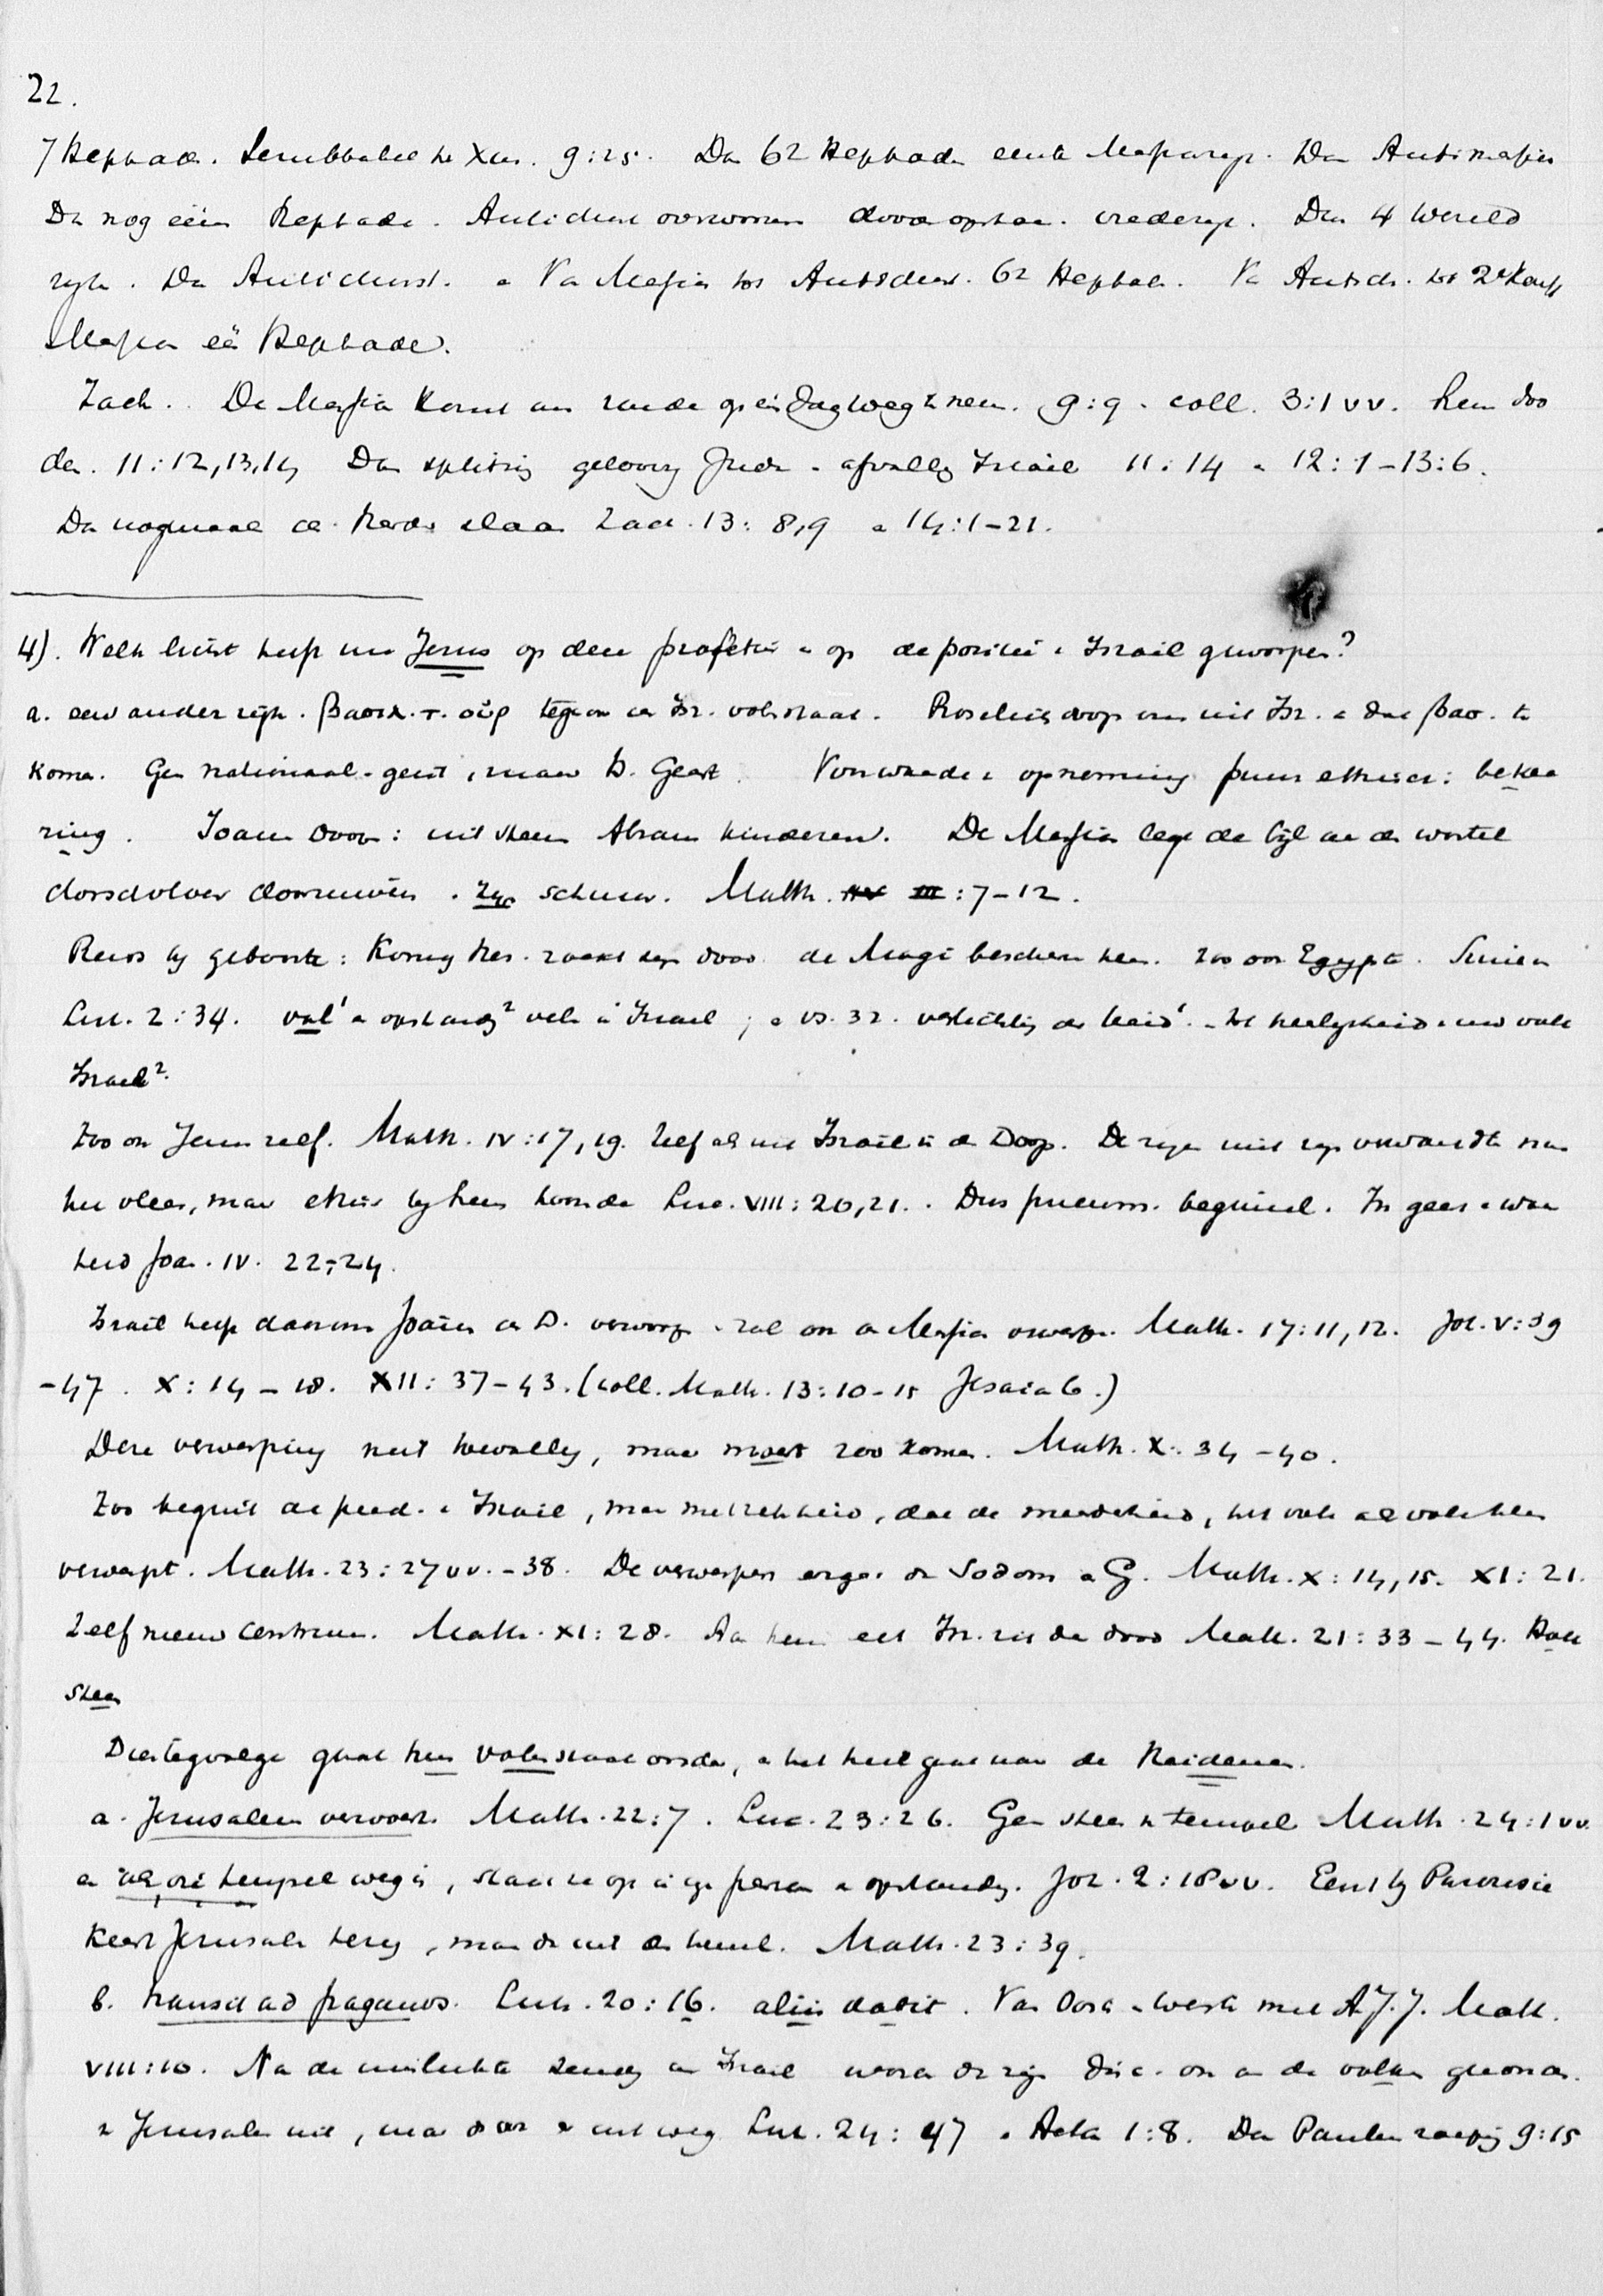 22.
7 Heptad. Serubbabel tot Xus. 9:25. Dan 62 Heptaden eerste Messiasrijk. Dan Antimessias
Dan nog één Heptade. Antichrist overwonnen door vrederijk. Dan 4 Wereld
rijken. Dan Antichrist. Van Messias tot Antichrist. 62 Heptad. Van Antich. tot 2e Komst
Messias één Heptade.
Zach. De Messias komt om zonde op één dag weg te nemen. 9:9. coll. 3:1 vv. hem doo
den. 11:12,13,14 Dan splitsing geloovig Juda afvallig Israël 11:14 12:1–13:6.
Dan nogmaals de herder slaan Zach. 13:8,9 14:1–21.
4). Welk licht heeft nu Jesus op deze profetie en op de positie v Israël geworpen?
a. een ander rijk. βασιλ. τ. οὐρ tegenover Isr. volksstaat. Proselietendoop om uit Isr. in dat βασ. te
komen. Geen nationaal-geest, maar H. Geest. Voorwaarde v opneming puur ethisch: bekee
ring. Joann Doop: uit steen Abram kinderen. De Messias legt de bijl aan den wortel
dorschvloer doorzuiveren. zijn schuur. Matth. III:7–12.
Reeds bij geboorte: Koning Her. zoekt hem dood. de Magi beschermen hem. Zoo ook Egypte. Simeon
Luc. 2:34. val¹ en opstanding² veler in Israel; en vs. 32. verlichting der heid¹. tot heerlijkheid v uw volk
Israel².
Zoo ook Jezus zelf. Matth. IV:17,19. Zelf als uit Israël in de Doop. De zijnen niet zijn verwandten naar
het vlees, maar ethisch bij hem hoorende Luc. VIII:20,21. Dus pneum. beginsel. In geest en waar
heid Joa. IV. 22–24.
Israël heeft daarom Joann den D. verworpen zal ook den Messias verwerpen. Matth. 17:11,12. Joh. V:39
–47. X:14–18. XII:37–43. (coll. Matth. 13:10–15 Jesaia 6.)
Deze verwerping niet toevallig, maar moest zoo komen. Matth. X:34–40.
Zoo begint de pred. v Israël, maar met zekerheid, dat de meerderheid, het volk als volk hem
verwerpt. Matth. 23:27 vv.–38. De verwerpers erger dan Sodom en G. Matth. X:14,15. XI:21.
Zelf nieuw centrum. Matth. XI:28. Aan hem eet Isr. zich den dood Matth. 21:33–44. Hoek
steen
Dientegevolge gaat hun volksstaat onder, en het heil gaat naar de Heidenen.
a. Jerusalem verwoest. Matth. 22:7. Luc. 23:26. Geen steen v tempel Matth. 24:1 vv.
en als die tempel weg is, staat ze op in zijn persoon en opstanding. Joh. 2:18 vv. Eerst bij Parousie
keert Jerusalem terug, maar dan uit den hemel. Matth. 23:39.
b. transit ad paganos. Luk. 20:16. aliis dabit. Van Oost en West met A.J.J. Matth.
VIII:10. Na de mislukte zending aan Israel worden zijn disc. ook aan de volken gezonden.
v Jerusalem uit, maar daar v uit weg Luc. 24:47 en Acta 1:8. Dan Paulus roeping 9:15